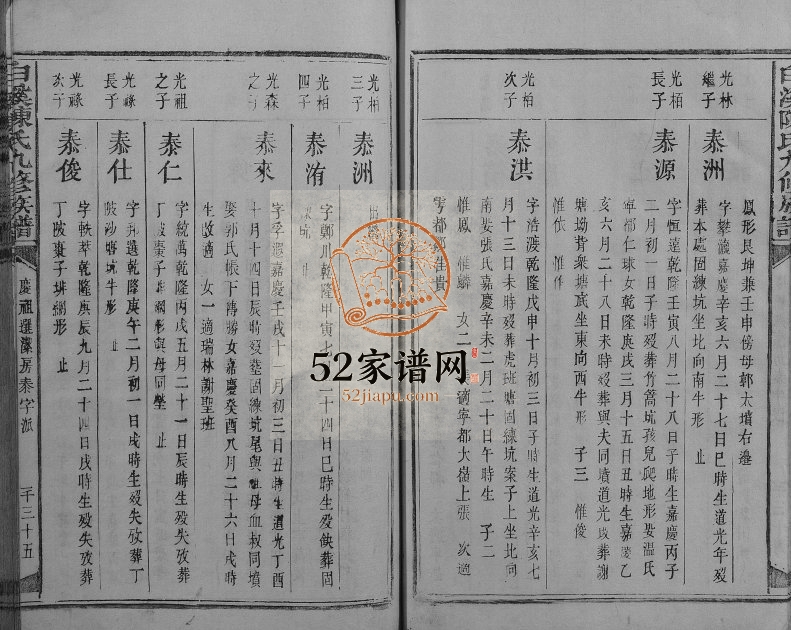 白溪陳氏九修族譜
鳳形艮坤兼壬申傍母郭太墳右邊
光林
繼子
泰洲
字攀瀛嘉慶辛亥六月二十七日巳時生道光年歿
葬本處固練坑坐北向南牛形 止
光栢
長子
泰源
字恒達乾隆壬寅八月二十八日子時生嘉慶丙子
二月初一日子時歿葬竹篙坑孩兒爬地形娶温氏
寧都仁球女乾隆庚戌三月十五日丑時生嘉慶乙
亥六月二十八日未時歿葬與夫同墳道光改葬謝
塘坳背衆塘底坐東向西牛形 子三 惟俊
惟依 惟作
光栢
次子
泰洪
字浩渡乾隆戊申十月初三日子時生道光辛亥七
月十三日未時歿葬虎班塘固練坑案子上坐北向
南娶張氏嘉慶辛未二月二十日午時生 子二
惟鳳 惟麟 女二 適寧都大嶺上張 次適
寧都 佳貴
光栢
三子
泰洲
光栢
四子
泰洧
字鄭川乾隆甲寅七 二十四日巳時生歿俱葬固
坑
光森
之子
泰來
字孚遠嘉慶壬戌十一月初三日丑時生道光丁酉
十月十四日辰時歿葬固練坑尾與祖母血叔同墳
娶郭氏帳下溥勝女嘉慶癸酉八月二十六日戌時
生改適 女一適瑞林謝聖班
光祖
之子
泰仁
字統萬乾隆丙戌五月二十一日辰時生歿失攷葬
丁陂棗子排網形與母同塋 止
光祿
長子
泰仕
字 選乾隆庚午二月初一日戌時生歿失攷葬丁
陂沙塘坑牛形 止
光祿
次子
泰俊
字軼萃乾隆庚辰九月二十四日戌時生歿失攷葬
丁陂棗子排網形 止
白溪陳氏九修族譜
慶祖 房泰字派
一千三十五
52家谱网
52jiapu.com